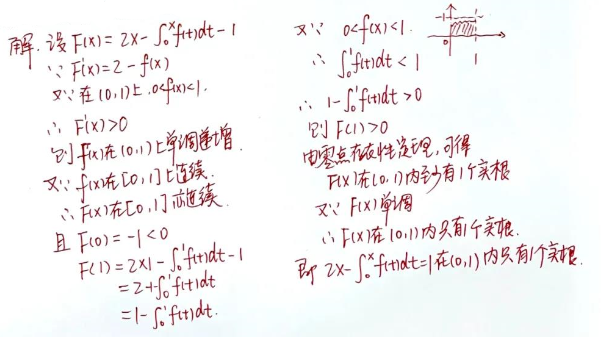 解. 设 F(x) = 2x - ∫₀ˣ f(t)dt - 1
∵ F'(x) = 2 - f(x)
又∵ 在(0,1)上, 0<f(x)<1.
∴ F'(x)>0
则 f(x)在(0,1)上单调递增.
又∵ f(x)在[0,1]上连续.
∴ F(x)在[0,1]亦连续.
且 F(0) = -1 < 0
F(1) = 2×1 - ∫₀¹ f(t)dt - 1
= 2-1-∫₀¹ f(t)dt
= 1-∫₀¹ f(t)dt.
又∵ 0<f(x)<1.
1
0
1
∴ ∫₀¹ f(t)dt < 1
∴ 1-∫₀¹ f(t)dt > 0
则 F(1)>0
由零点存在性定理,可得
F(x)在(0,1)内至少有1个实根
又∵ F(x)单调
∴ F(x)在(0,1)内只有1个实根.
即 2x-∫₀ˣ f(t)dt=1在(0,1)内只有1个实根.